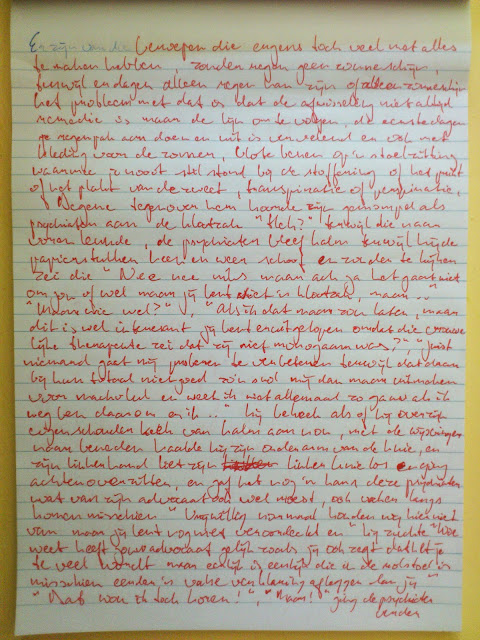 Er zijn van die beroepen die ergens toch veel met alles
te maken hebben, zonder regen geen zonneschijn,
terwijl en dagen alleen regen kan zijn of alleen zonneschijn
het probleem met dat is dat de afwisseling niet altijd
remedie is maar de lijn om te volgen, de eerste dagen
je regenpak aan doen en uit is vervelend en ook met
kleding voor de zonnen, blote benen op 'n stoelzitting
waarmee je nooit stil stond bij de stoffering of het prikt
of het plakt van de zweet, transpiratie of perspiratie,
Degene tegenover hem hoorde zijn gemompel als
psychiater aan de "Heh?" terwijl die naar
voren leunde, de psychiater bleef kalm terwijl hij de
papieren heen en weer schoof en zonder te kijken
zei die "Nee nee mis maar ach ja het gaat niet
om jou of wel maar jij bent niet in, maar.."
"Maar die wel?", "Als ik dat maar zou laten, maar
dit is wel interessant jij bent eruit gelopen omdat die vrouwe
lijke therapeute zei dat zij niet monogaam was?", "Juist
niemand gaat mij proberen te verbeteren terwijl dat daar
bij hun totaal niet goed zou en mij dan maar uitmaken
voor en weet ik wat allemaal zo gauw als ik
weg ben daarom en ik.." Hij bekeek als of hij over zijn
ogen keek van kalm aan nou, met de
naar beneden haalde hij zijn onderarm van de knie, en
zijn linkerhand liet zijn linker knie los en ging
achterover zitten, en gaf het nog 'n kans deze psychiater
wat van zijn advocaat ook wel moest, ook weken langs
komen misschien "Vrijwillig normaal houden wij hier niet
van maar jij bent nog niet veroordeeld en" hij zuchtte "Wie
weet heeft jouw advocaat gelijk zoals jij ook zegt dat het je
te veel wordt maar eerlijk is eerlijk die in de
misschien eerder 'n valse verklaring afleggen dan jij"
"Dat wou ik toch horen!", "Maar!" ging de psychiater
verder